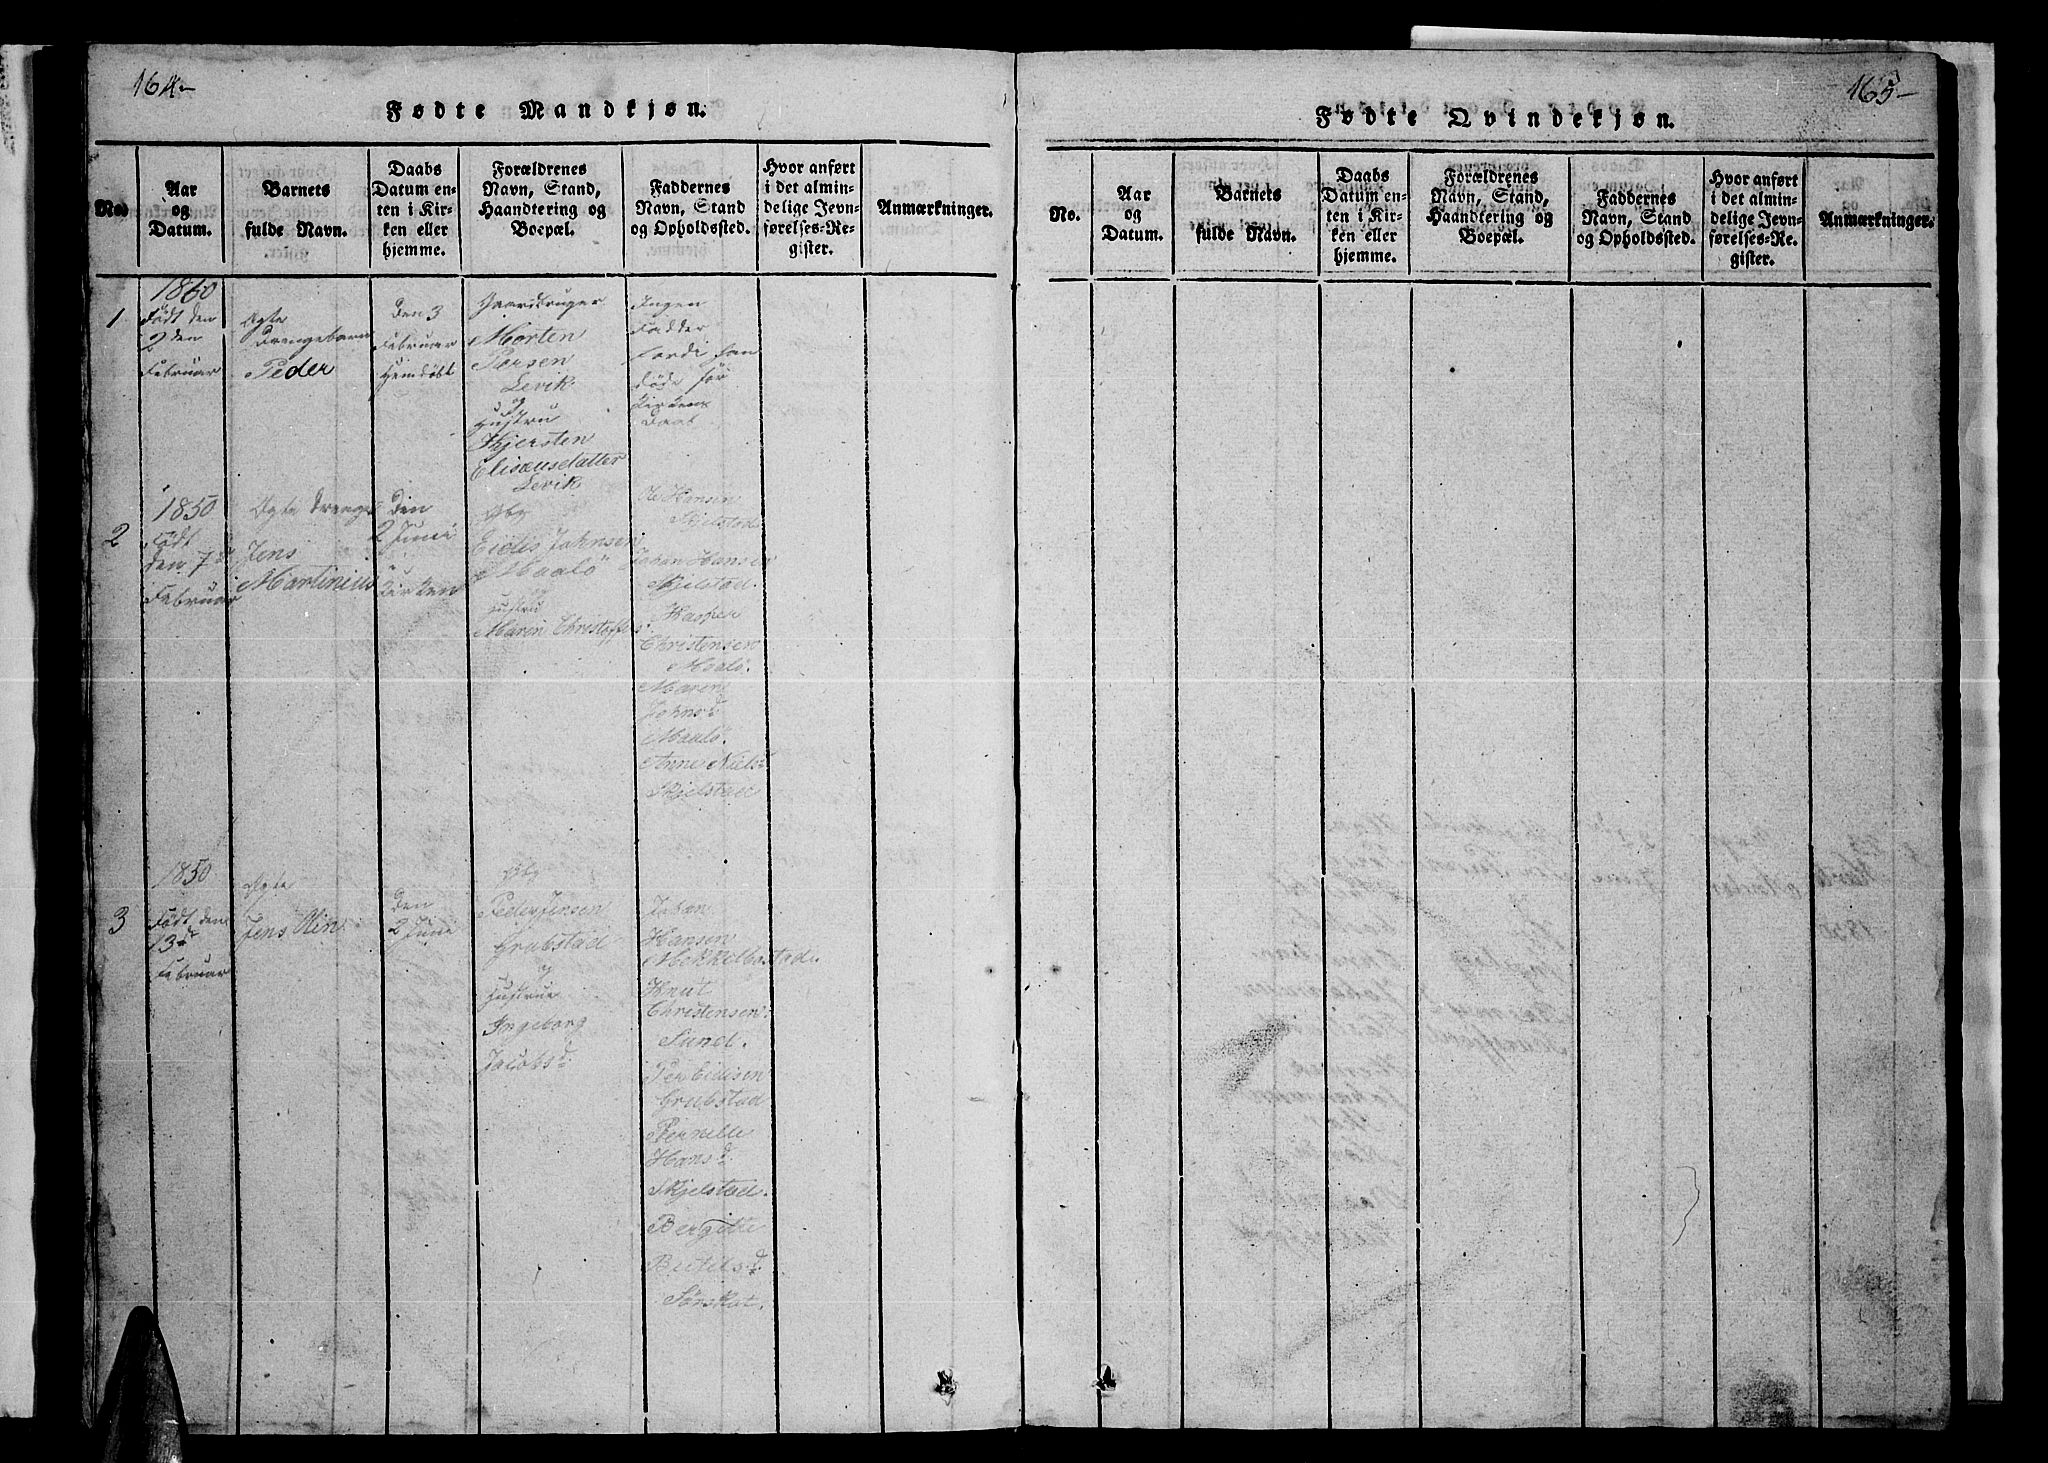 164-
Fødte Mandkjøn.
No.
Aar
og
Datum.
Barnets
fulde Navn.
Daabs
Datum en-
ten i Kir-
ken eller
hjemme.
Forældrenes
Navn, Stand,
Haandtering og
Boepæl.
Faddernes
Navn, Stand
og Opholdssted.
Hvor anført
i det almin-
delige Jevn-
førelses-Re-
gister.
Anmærkninger.
1
1860
Født den
2den
Februar
Ægte
Drengebarn
Peder
Den 3
Februar
Hjemdøbt
Gaardbruger
Morten
Persen
Levik
og
Hustru
Kjersten
Elisæusdatter
Levik
Ingen
Fadder
fordi han
døde før
Kirkens
Daab
2
1850
Født
den 7d
Februar
Ægte Drenge
Jens
Martinius
Den
2 Juni
i
Kirken
Gbr
Eidis Johnsen
Maalö
og
Hustru
Maren Christoffs
Hansen
Skjelstad
Johan Hansen
Skjelstad.
Kasper
Christensen
Maalö.
Maren
Johnsd
Maalö.
Anne Nielsd
Skjelstad
3
1850
Født den
13de
Februar
Ægte
Jens Olin
den
2 Juni
Gbr
Peder Jensen
Grubstad
og
Hustrue
Ingeborg
Jacobsd
Johan
Hansen
Mekkelbostad.
Knut
Christensen
Sund.
Per Eidisen
Grubstad
Pernille
Hansd
Skjelstad.
Bergitte
Bertelsd
Sörskot.
165-
Fødte Qvindekjøn.
No.
Aar
og
Datum.
Barnets
fulde Navn.
Daabs
Datum en-
ten i Kir-
ken eller
hjemme.
Forældrenes
Navn, Stand,
Haandtering og
Boepæl.
Faddernes
Navn, Stand
og Opholdssted.
Hvor anført
i det almin-
delige Jevn-
førelses-Re-
gister.
Anmærkninger.